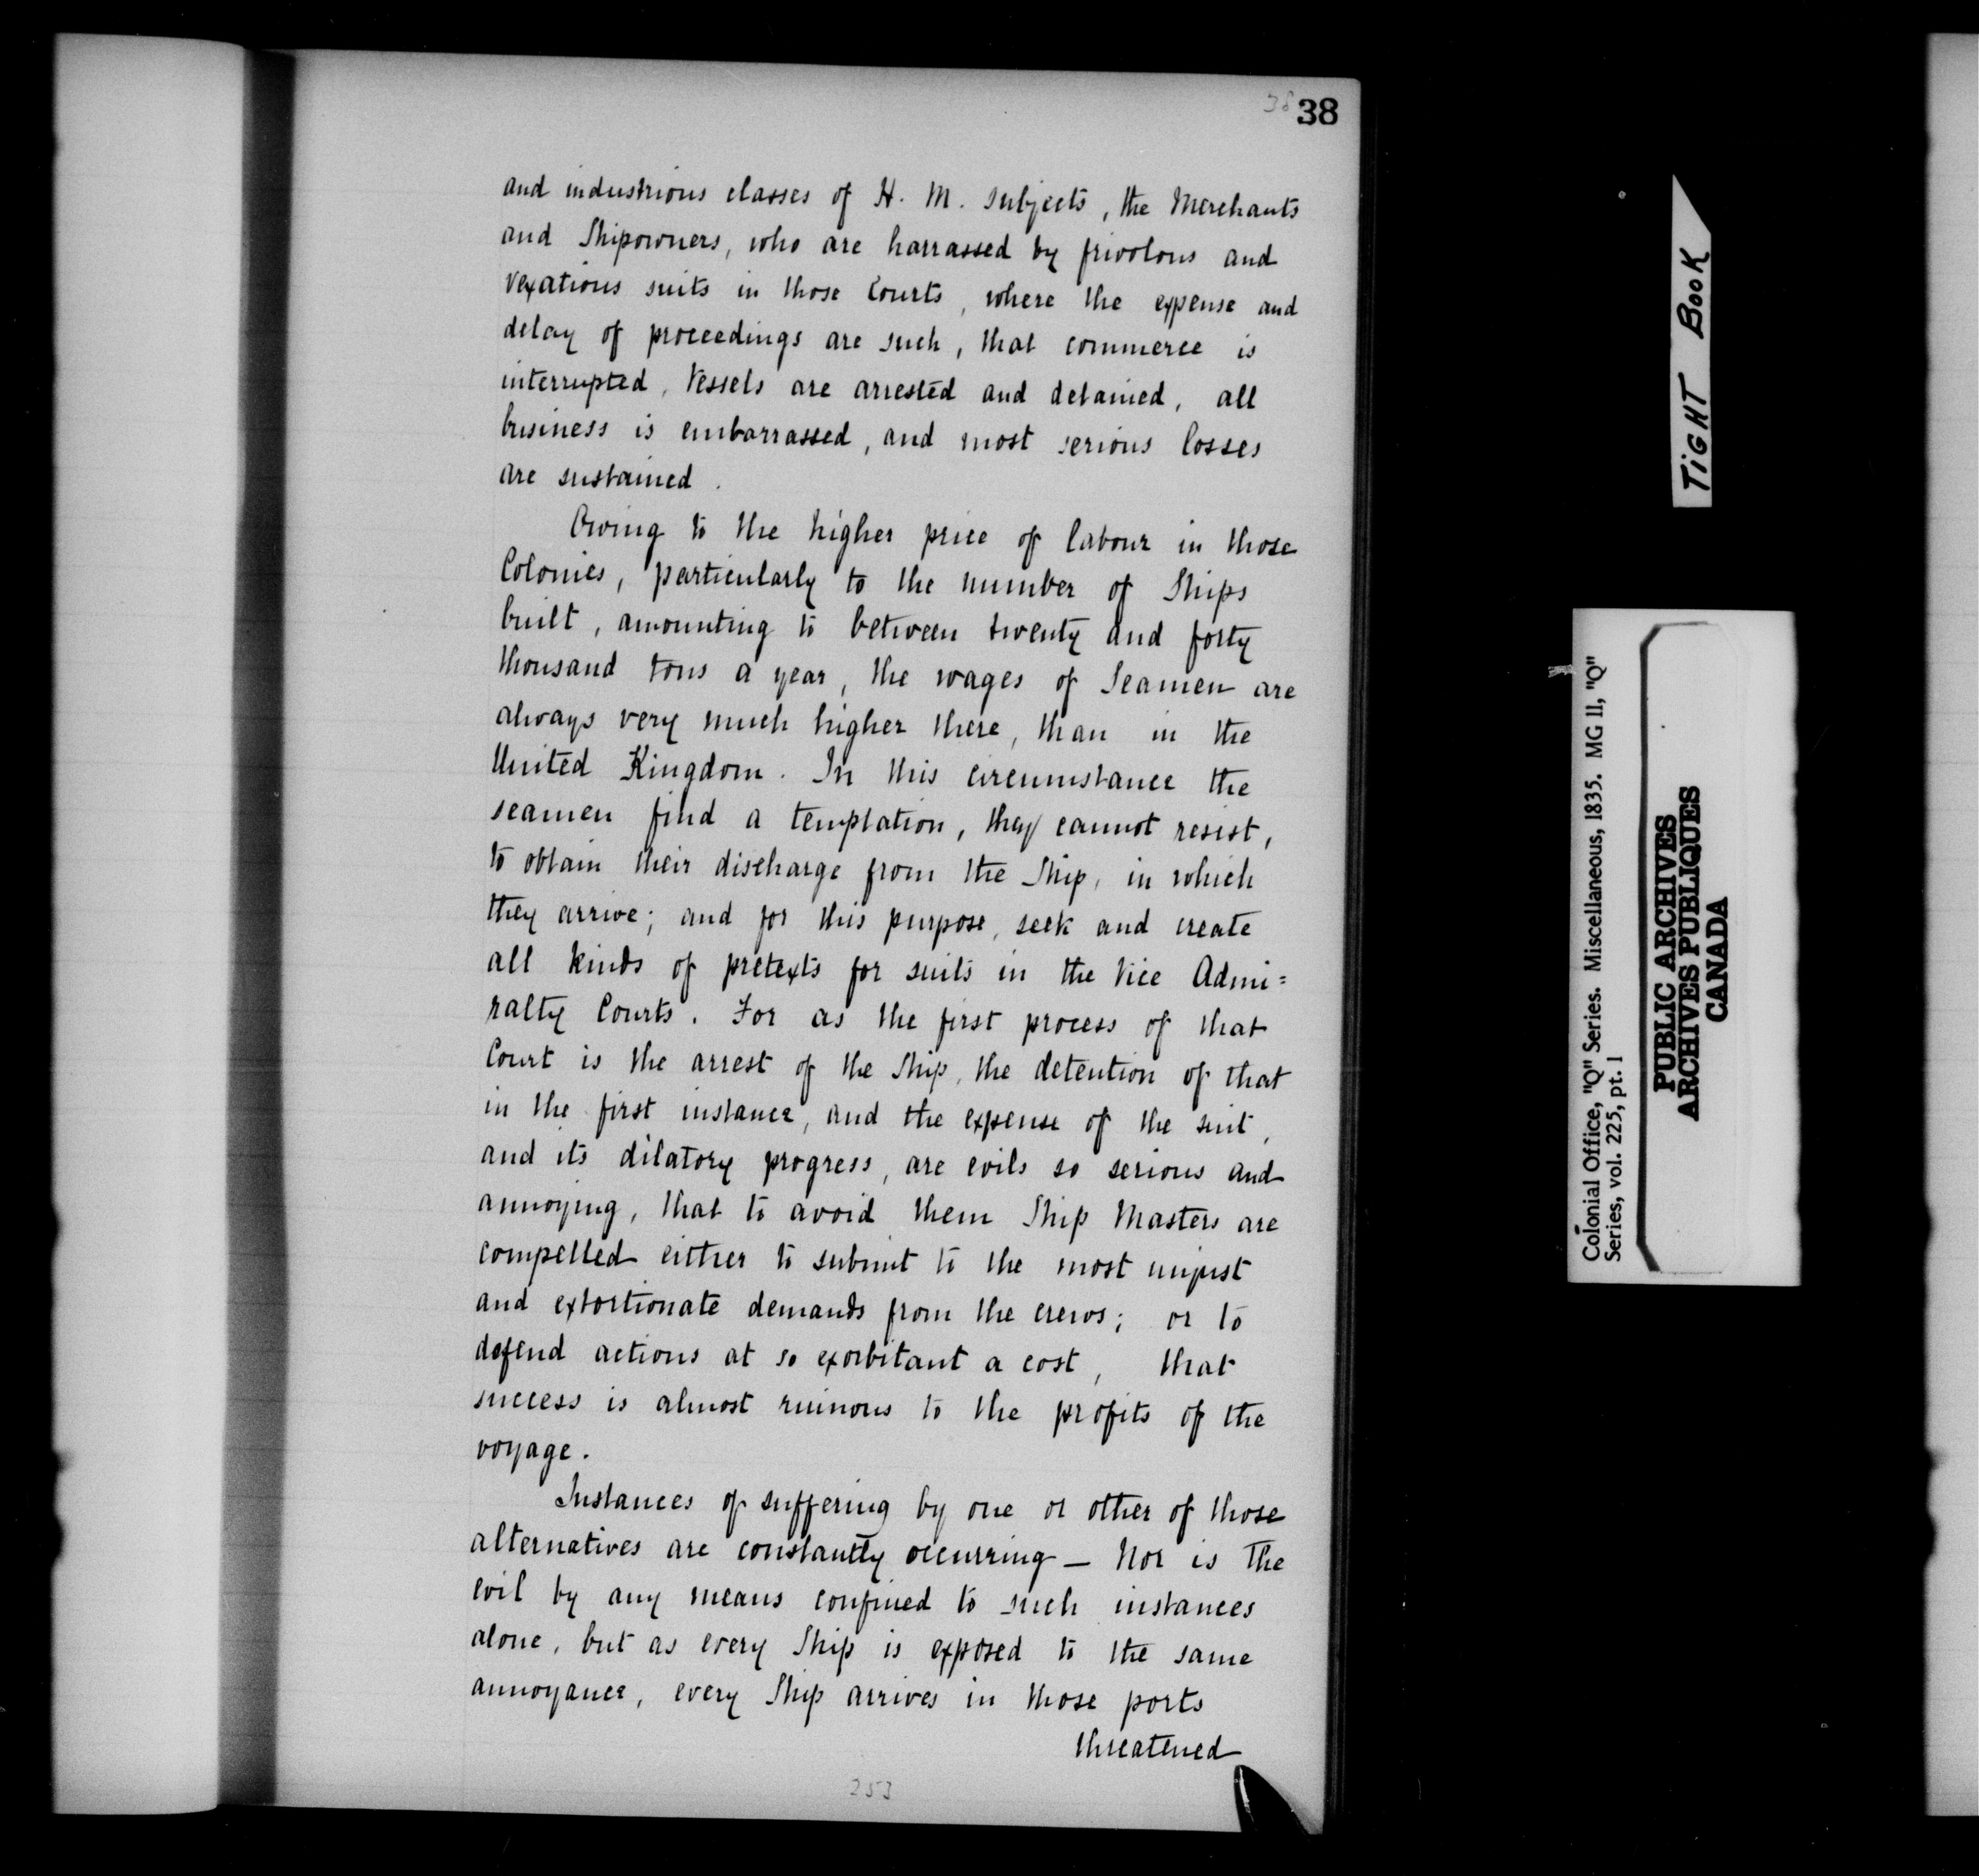 38 38
and industrious classes of H. M. subjects, the Merchants
and Shipowners, who are harrassed by frivolous and
vexatious suits in those Courts, where the expense and
delay of proceedings are such, that commerce is
interrupted, Vessels are arrested and detained, all
business is embarrassed, and most serious losses
are sustained.
Owing to the higher price of labour in those
Colonies, particularly to the number of Ships
built, amounting to between twenty and forty
thousand tons a year, the wages of Seamen are
always very much higher there, than in the
United Kingdom. In this circumstance the
seamen find a temptation, they cannot resist,
to obtain their discharge from the Ship, in which
they arrive; and for this purpose, seek and create
all kinds of pretexts for suits in the Vice Admi=
ralty Courts. For as the first process of that
Court is the arrest of the Ship, the detention of that
in the first instance, and the expense of the suit,
and its dilatory progress, are evils so serious and
annoying, that to avoid them Ship Masters are
compelled either to submit to the most unjust
and extortionate demands from the crews; or to
defend actions at so exorbitant a cost, that
success is almost ruinous to the profits of the
voyage.
Instances of suffering by one or other of those
alternatives are constantly occurring — Nor is the
evil by any means confined to such instances
alone, but as every Ship is exposed to the same
annoyance, every Ship arrives in those ports
threatened
253
TIGHT BOOK
Colonial Office, "Q" Series. Miscellaneous, 1835. MG 11, "Q"
Series, vol. 225, pt. 1
PUBLIC ARCHIVES
ARCHIVES PUBLIQUES
CANADA